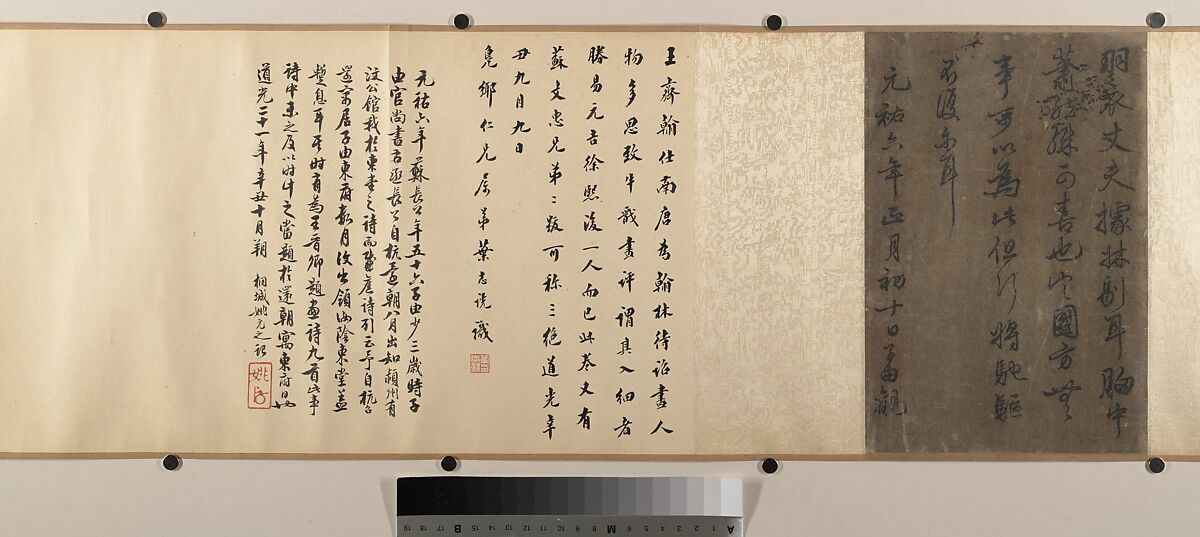 羽衣丈夫據牀剔耳胸中
蕭然殊可喜也方圓方
事可以為此但行將馳驅
不復爾耳
元祐六年正月初十日子由觀
王齊翰仕南唐為翰林待詔畫人
物多思致牛戩畫評謂其入細者
勝易元吉徐熙後一人而已此卷又有
蘇文忠兄弟二跋可称三絕道光辛
丑九月九日
鳧鄉仁兄屬弟葉志詵識
元祐六年蘇長公年五十六子由少三歲時子
由官尚書右丞長公自杭還朝八月出知潁州有
感舊詩引云予自杭召
還寓居子由東府數月後出領汝陰東堂蓋
憩息耳其時有為王晉卿題畫詩九首此事
詩中未之及以時計之當題於還朝寓東府日也
道光二十一年辛丑十月朔 桐城姚元之記